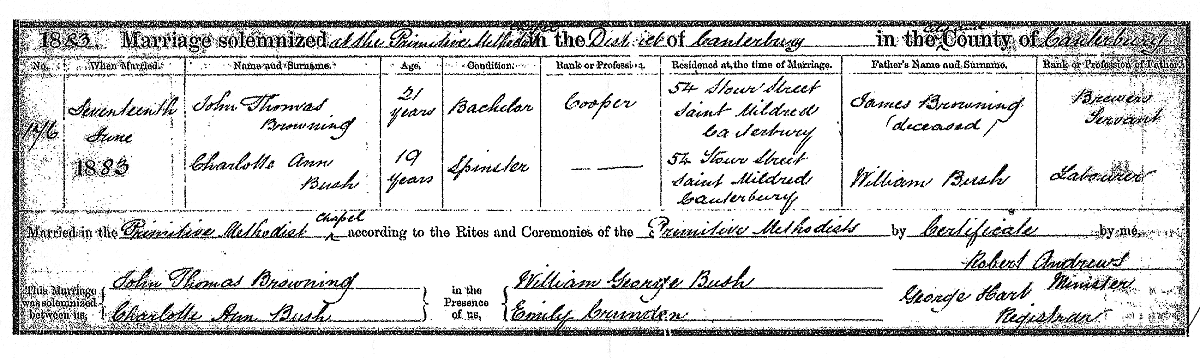 1883. Marriage solemnized at the Primitive Methodist in the District of Canterbury in the County of Canterbury
No. When Married. Name and Surname. Age. Condition. Rank or Profession. Residence at the time of Marriage. Father's Name and Surname. Rank or Profession of Father.
Seventeenth June 1883
John Thomas Browning
21 years
Bachelor
Cooper
54 Stour Street
Saint Mildred
Canterbury
James Browning
(deceased)
Brewers
Servant
Charlotte Ann
Bush
19 years
Spinster
54 Stour Street
Saint Mildred
Canterbury
William Bush
Labourer
Married in the Primitive Methodist chapel according to the Rites and Ceremonies of the Primitive Methodists by Certificate by me,
Robert Andrews
Minister
This Marriage was solemnized between us,
John Thomas Browning
Charlotte Ann Bush
in the Presence of us,
William George Bush
Emily Crunden
George Hart
Registrar